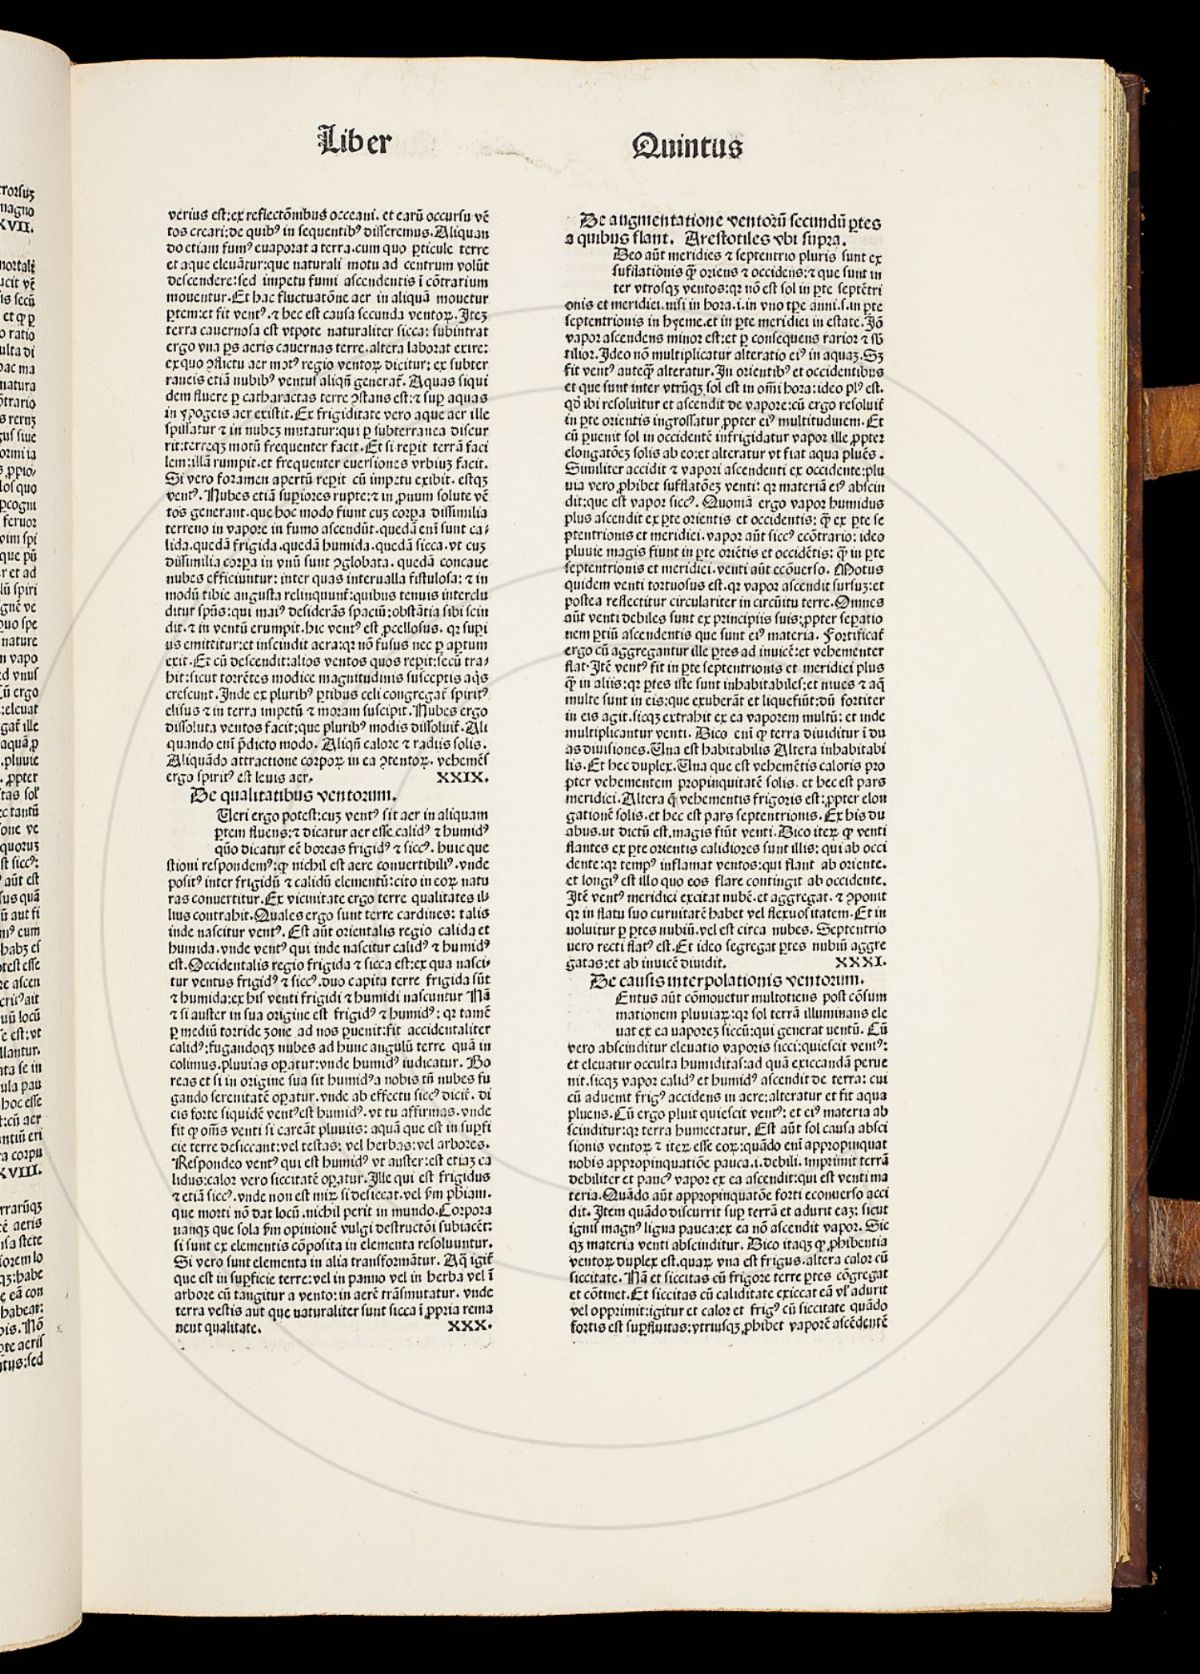 Liber Quintus
verius est:ex reflectõnibus occeani. et earũ occursu vẽ
tos creari:de quibꝰ in sequentibꝰ differemus. Aliquan
do etiam fumꝰ euaporat a terra.cum quo ꝑticule terre
et aque eleuãtur:que naturali motu ad centrum volũt
descendere:sed impetu fumi ascendentis ĩ cõtrarium
mouentur. Et hac fluctuatõne aer in aliquã mouetur
ꝑtem:et fit ventꝰ. ⁊ hec est causa secunda ventoꝝ. Iteꝫ
terra cauernosa est vtpote naturaliter sicca: subintrat
ergo vna ꝑs aeris cauernas terre.altera laborat exire:
ex quo ꝯflictu aer motꝰ regio ventoꝝ dicitur: ex subter
raneis etiã nubibꝰ ventus aliqñ generat᷑. Aquas siqui
dem fluere ꝑ catharactas terre ꝯstans est: ⁊ suꝑ aquas
in ypogeis aer existit. Ex frigiditate vero aque aer ille
spissatur ⁊ in nubeꝫ mutatur:qui ꝑ subterranea discur
rit:terreqꝫ motũ frequenter facit. Et si reꝑit terrã faci
lem:illã rumpit.et frequenter euersiones vrbiuꝫ facit.
Si vero foramen apertũ reꝑit cũ impetu exibit. estqꝫ
ventꝰ. Nubes etiã suꝑiores rupte: ⁊ in ꝓnum solute vẽ
tos generant.que hoc modo fiunt cuꝫ corꝑa dissimilia
terreno in vapore in fumo ascendũt.quedã enĩ sunt ca⸗
lida.quedã frigida.quedã humida.quedã sicca.vt cuꝫ
dissimilia corꝑa in vnũ sunt ꝯglobata. quedã concaue
nubes efficiuntur: inter quas interualla fistulosa: ⁊ in
modũ tibie angusta relinquunt᷑:quibus tenuis interclu
ditur spũs:qui maiꝰ desiderãs spaciũ:obstãtia sibi scin
dit. ⁊ in ventũ erumpit.hic ventꝰ est ꝓcellosus. qꝛ suꝑi
us emittitur:et inscindit aera:qꝛ nõ fusus nec ꝑ aꝑtum
exit. Et cũ descendit:alios ventos quos reꝑit:secũ tra⸗
hit:sicut torrẽtes modice magnitudinis susceptis aq̃s
crescunt. Inde ex pluribꝰ ꝑtibus celi congregat᷑ spiritꝰ
elisus ⁊ in terra impetũ ⁊ moram suscipit. Nubes ergo
dissoluta ventos facit:que pluribꝰ modis dissoluit᷑. Ali
quando enĩ p̃dicto modo. Aliqñ calore ⁊ radiis solis.
Aliquãdo attractione corpoꝝ in ea ꝯtentoꝝ. vehemẽs
ergo spiritꝰ est leuis aer. XXIX.
De qualitatibus ventorum.
Ueri ergo potest:cuꝫ ventꝰ sit aer in aliquam
ꝑtem fluens: ⁊ dicatur aer esse calidꝰ ⁊ humidꝰ
qũo dicatur eẽ boreas frigidꝰ ⁊ siccꝰ. huic que
stioni respondemꝰ:ꝙ nichil est aere conuertibiliꝰ. vnde
positꝰ inter frigidũ ⁊ calidũ elementũ:cito in eoꝝ natu
ras conuertitur. Ex vicinitate ergo terre qualitates il⸗
lius contrahit. Quales ergo sunt terre cardines: talis
inde nascitur ventꝰ. Est aũt orientalis regio calida et
humida.vnde ventꝰ qui inde nascitur calidꝰ ⁊ humidꝰ
est. Occidentalis regio frigida ⁊ sicca est:ex qua nasci⸗
tur ventus frigidꝰ ⁊ siccꝰ. duo capita terre frigida sũt
⁊ humida:ex his venti frigidi ⁊ humidi nascuntur Nã
⁊ si auster in sua origine est frigidꝰ ⁊ humidꝰ: qꝛ tamẽ
ꝑ mediũ torride zone ad nos ꝑuenit:fit accidentaliter
calidꝰ:fugandoqꝫ nubes ad hunc angulũ terre quã in
colimus.pluuias oꝑatur:vnde humidꝰ iudicatur. Bo
reas et si in origine sua sit humidꝰ:a nobis tñ nubes fu
gando serenitatẽ oꝑatur.vnde ab effectu siccꝰ dicit᷑. di
cis forte siquidẽ ventꝰ est humidꝰ. vt tu affirmas. vnde
fit ꝙ om̃s venti si careãt pluuiis: aquã que est in suꝑfi
cie terre desiccant:vel testas: vel herbas:vel arbores.
Respondeo ventꝰ qui est humidꝰ vt auster:est etiaꝫ ca
lidus:calor vero siccitatẽ oꝑatur. Ille qui est frigidus
⁊ etiã siccꝰ. vnde non est miꝝ si desiccat.vel ẜm ph̃iam.
que morti nõ dat locũ.nichil perit in mundo. Corpora
nanqꝫ que sola ẜm opinionẽ vulgi destructõi subiacẽt:
si sunt ex elementis cõposita in elementa resoluuntur.
Si vero sunt elementa in alia transformãtur. Aq̃ igit᷑
que est in suꝑficie terre:vel in panno vel in herba vel ĩ
arbore cũ tangitur a vento:in aerẽ trãsmutatur. vnde
terra vestis aut que naturaliter sunt sicca ĩ ꝓpria rema
nent qualitate. XXX.
De augmentatione ventorũ secundũ ꝑtes
a quibus flant. Arestotiles vbi supra.
Deo aũt meridies ⁊ septentrio pluris sunt ex
sufflatiõnis q̃ꝫ oriens ⁊ occidens: ⁊ que sunt in
ter vtrosqꝫ ventos:qꝛ nõ est sol in ꝑte septẽtri
onis et meridiei.nisi in hora.i.in vno tꝑe anni.s.in ꝑte
septentrionis in hyeme.et in ꝑte meridiei in estate. Iõ
vapor ascendens minor est:et ꝑ consequens rarior ⁊ sb̃
tilior. Ideo nõ multiplicatur alteratio eiꝰ in aquaꝫ. Sꝫ
fit ventꝰ anteq̃ꝫ alteratur. In orientibꝰ et occidentibus
et que sunt inter vtrũqꝫ sol est in om̃i hora: ideo plꝰ est.
qd̃ ibi resoluitur et ascendit de vapore:cũ ergo resoluit᷑
in ꝑte orientis ingrossatur ꝓpter eiꝰ multitudinem. Et
cũ ꝑuenit sol in occidentẽ infrigidatur vapor ille ꝓpter
elongatõeꝫ solis ab eo:et alteratur vt fiat aqua pluẽs.
Similiter accidit ⁊ vapori ascendenti ex occidente:plu
uia vero ꝓhibet sufflatõeꝫ venti: qꝛ materiã eiꝰ abscin
dit:que est vapor siccꝰ. Quoniã ergo vapor humidus
plus ascendit ex ꝑte orientis et occidentis: q̃ꝫ ex ꝑte se
ptentrionis et meridiei.vapor aũt siccꝰ ecõtrario: ideo
pluuie magis fiunt in ꝑte oriẽtis et occidẽtis: q̃ꝫ in ꝑte
septentrionis et meridiei.venti aũt ecõuerso. Motus
quidem venti tortuosus est.qꝛ vapor ascendit sursuꝫ:et
postea reflectitur circulariter in circũitu terre. Omnes
aũt venti debiles sunt ex principiis suis:ꝓpter seꝑatio
nem ꝑtiũ ascendentis que sunt eiꝰ materia. Fortificat᷑
ergo cũ aggregantur ille ꝑtes ad inuicẽ:et vehementer
flat. Itẽ ventꝰ fit in ꝑte septentrionis et meridiei plus
q̃ꝫ in aliis:qꝛ ꝑtes iste sunt inhabitabiles:et niues ⁊ aq̃
multe sunt in eis:que exuberãt et liquefiũt:dũ fortiter
in eis agit.sicqꝫ extrahit ex ea vaporem multũ: et inde
multiplicantur venti. Dico enĩ ꝙ terra diuiditur ĩ du
as diuisiones. Una est habitabilis Altera inhabitabi
lis. Et hec duplex. Una que est vehemẽtis caloris pro
pter vehementem propinquitatẽ solis. et hec est pars
meridiei. Altera q̃ vehementis frigoris est:ꝓpter elon
gationẽ solis.et hec est pars septentrionis. Ex his du
abus.ut dictũ est.magis fiũt venti. Dico iteꝝ ꝙ venti
flantes ex ꝑte orientis calidiores sunt illis: qui ab occi
dente:qꝛ tempꝰ inflamat ventos:qui flant ab oriente.
et longiꝰ est illo quo eos flare contingit ab occidente.
Itẽ ventꝰ meridiei excitat nubẽ.et aggregat. ⁊ ꝯponit
qꝛ in flatu suo curuitatẽ habet vel flexuositatem. Et in
uoluitur ꝑ ꝑtes nubiũ.vel est circa nubes. Septentrio
uero recti flatꝰ est. Et ideo segregat ꝑtes nubiũ aggre
gatas:et ab inuicẽ diuidit. XXXI.
De causis interpolationis ventorum.
Entus aũt cõmouetur multotiens post cõsum
mationem pluuiaꝝ:qꝛ sol terrã illuminans ele
uat ex ea vaporeꝫ siccũ:qui generat ventũ. Cũ
vero abscinditur eleuatio vaporis sicci:quiescit ventꝰ:
et eleuatur occulta humiditas:ad quã exiccandã perue
nit.sicqꝫ vapor calidꝰ et humidꝰ ascendit de terra: cui
cũ aduenit frigꝰ accidens in aere:alteratur et fit aqua
pluens. Cũ ergo pluit quiescit ventꝰ: et eiꝰ materia ab
scinditur:qꝛ terra humectatur. Est aũt sol causa absci
sionis ventoꝝ ⁊ iteꝝ esse eoꝝ:quãdo enĩ appropinquat
nobis appropinquatiõe pauca.i.debili. imprimit terrã
debiliter et paucꝰ vapor ex ea ascendit:qui est venti ma
teria. Quãdo aũt appropinquatõne forti econuerso acci
dit. Item quãdo discurrit suꝑ terrã et adurit eaꝫ: sicut
ignis magnꝰ ligna pauca:ex ea nõ ascendit vapor. Sic
qꝫ materia venti abscinditur. Dico itaqꝫ ꝙ ꝓhibentia
ventoꝝ duplex est.quaꝝ vna est frigus.altera calor cũ
siccitate. Nã et siccitas cũ frigore terre ꝑtes cõgregat
et cõtinet. Et siccitas cũ caliditate exiccat eã vl̓ adurit
vel opprimit:igitur et calor et frigꝰ cũ siccitate quãdo
fortis est suꝑfluitas:vtriusqꝫ ꝓhibet vaporẽ ascẽdentẽ